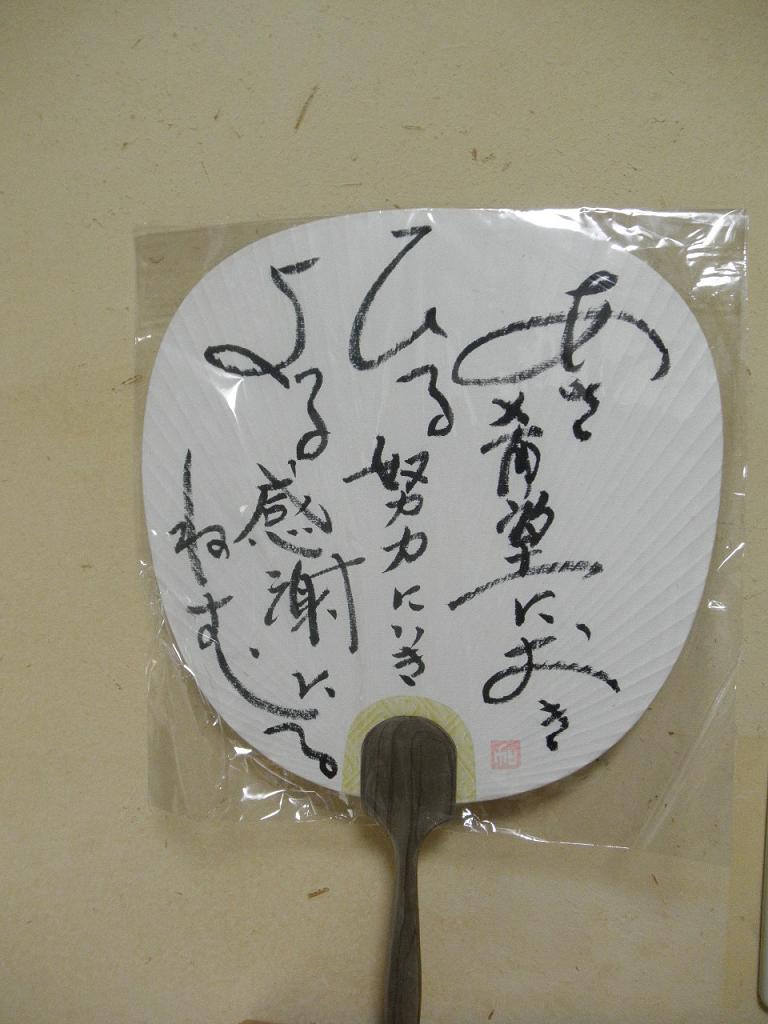 あさ希望におき
ひる努力にいき
よる感謝に
ねむる